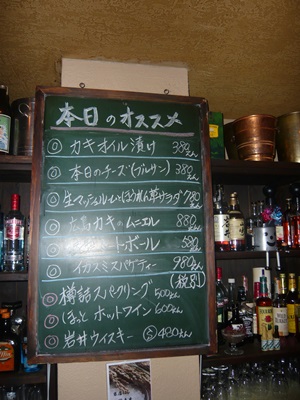 本日のオススメ
◎ カキオイル漬け 380えん
◎ 本日のチーズ(ブルサン) 380えん
◎ 生マッシュルームとほうれん草サラダ 780えん
◎ 広島カキのムニエル 880えん
ートボール 580えん
◎ イカスミスパゲティー 980えん
(税別)
◎ 樽詰スパークリング 500えん
◎ ほっと ホットワイン 600えん
◎ 岩井ウイスキー 480えん